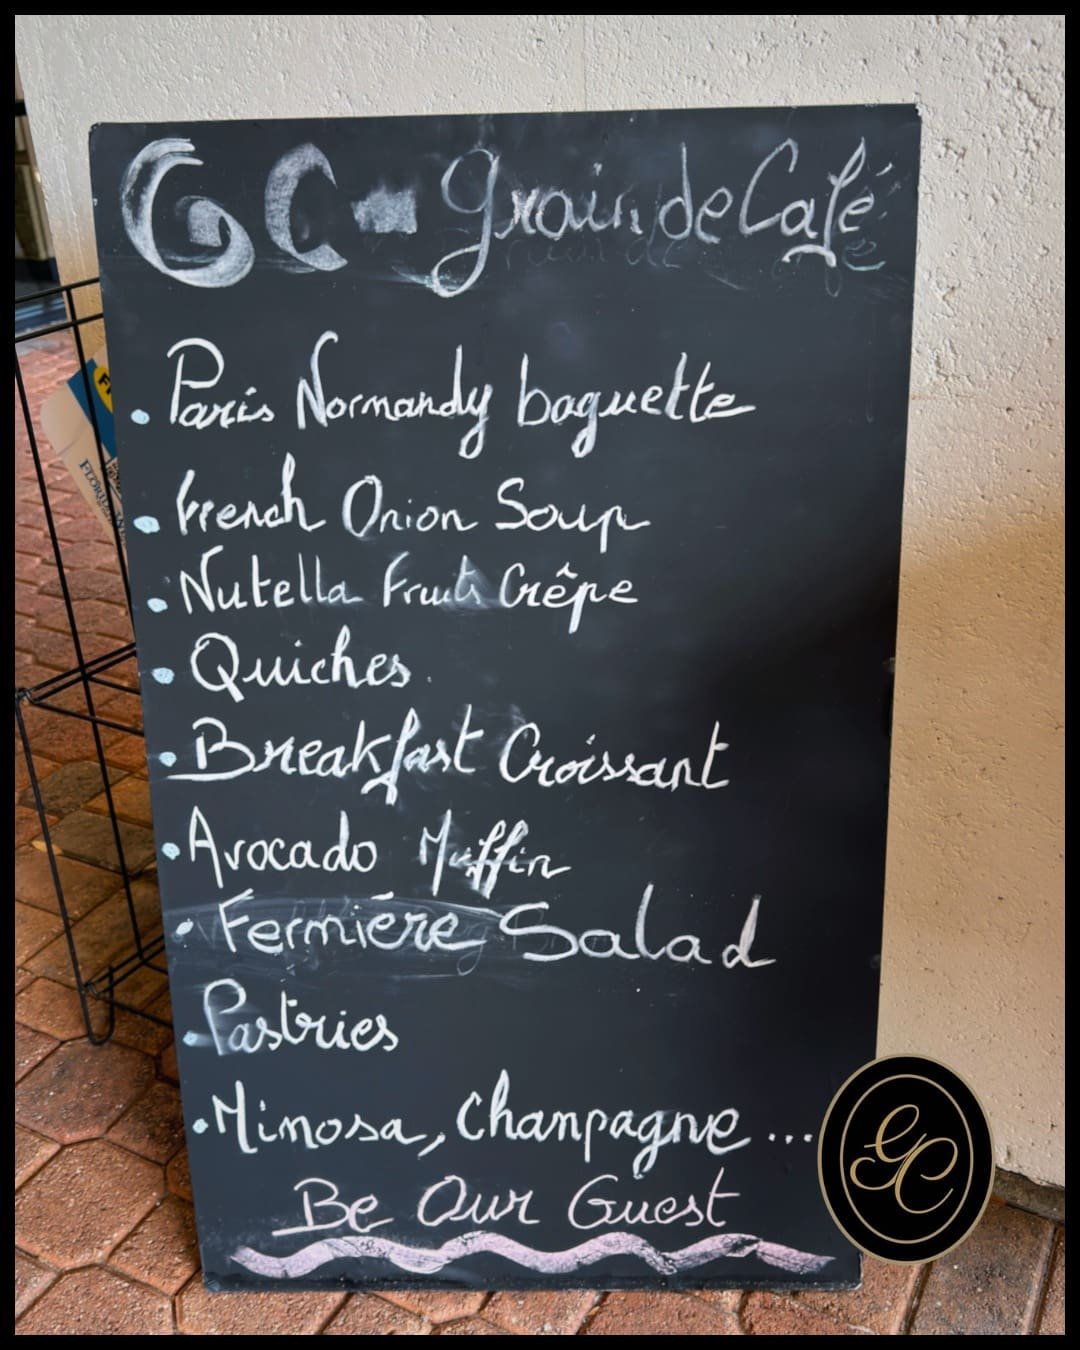 GC - Grain de Café
• Paris Normandy baguette
• French Onion Soup
• Nutella Fruits Crêpe
• Quiches
• Breakfast Croissant
• Avocado Muffin
• Fermière Salad
• Pastries
• Mimosa, Champagne ...
Be Our Guest
GC